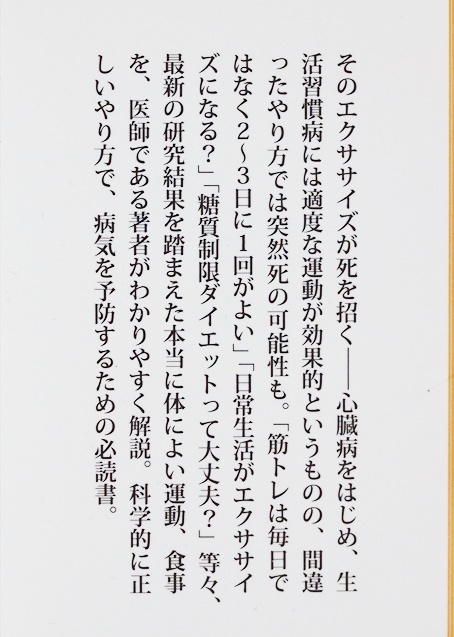 そのエクササイズが死を招く──心臓病をはじめ、生
活習慣病には適度な運動が効果的というものの、間違
ったやり方では突然死の可能性も。「筋トレは毎日で
はなく2〜3日に1回がよい」「日常生活がエクササイ
ズになる？」「糖質制限ダイエットって大丈夫？」等々、
最新の研究結果を踏まえた本当に体によい運動、食事
を、医師である著者がわかりやすく解説。科学的に正
しいやり方で、病気を予防するための必読書。